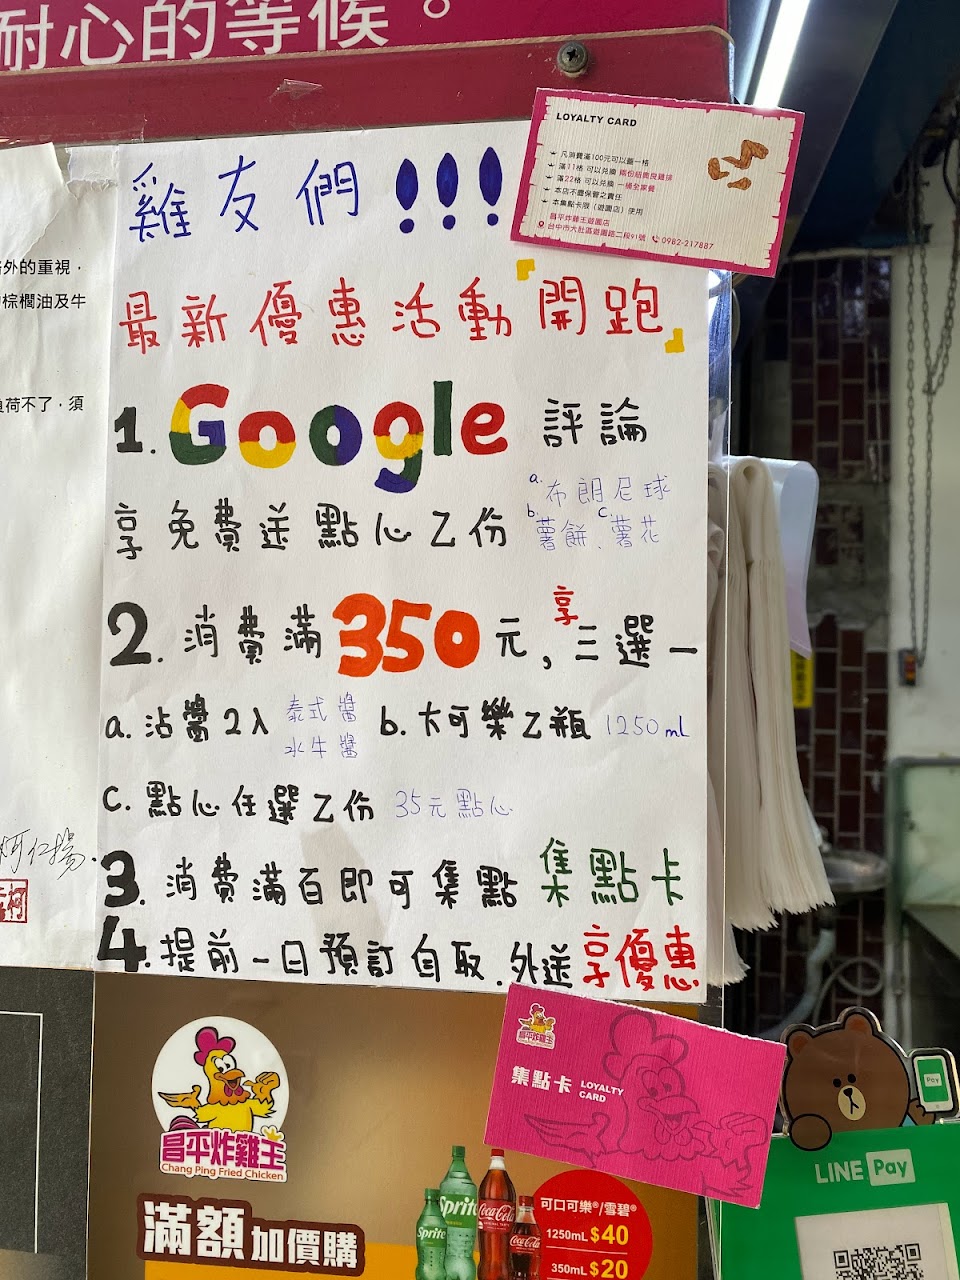 耐心的等候。
外的重視，
棕櫚油及牛
荷不了，須
雞友們!!!
最新優惠活動「開跑」
1. Google 評論
享免費送點心乙份
a. 布朗尼球
b. 薯餅、c. 薯花
2. 消費滿350元，享三選一
a. 沾醬2入 泰式醬
水牛醬
b. 大可樂乙瓶 1250ml
c. 點心任選乙份 35元點心
3. 消費滿百即可集點 集點卡
4. 提前一日預訂自取.外送享優惠
LOYALTY CARD
凡消費滿100元可以蓋一格
滿11格 可以兌換 兩份招牌
滿22格 可以兌換 一桶全家餐
本店不負保管之責任
本集點卡限（遊園店）使用
昌平炸雞王遊園店
台中市大肚區遊園路二段91號 0982-217887
昌平炸雞王
集點卡 LOYALTY
CARD
昌平炸雞王
Chang Ping Fried Chicken
滿額加價購
Sprite
Sprite
Coca-Cola
Coca-Cola
可口可樂®/雪碧®
1250mL $40
350mL $20
Pay
LINE Pay